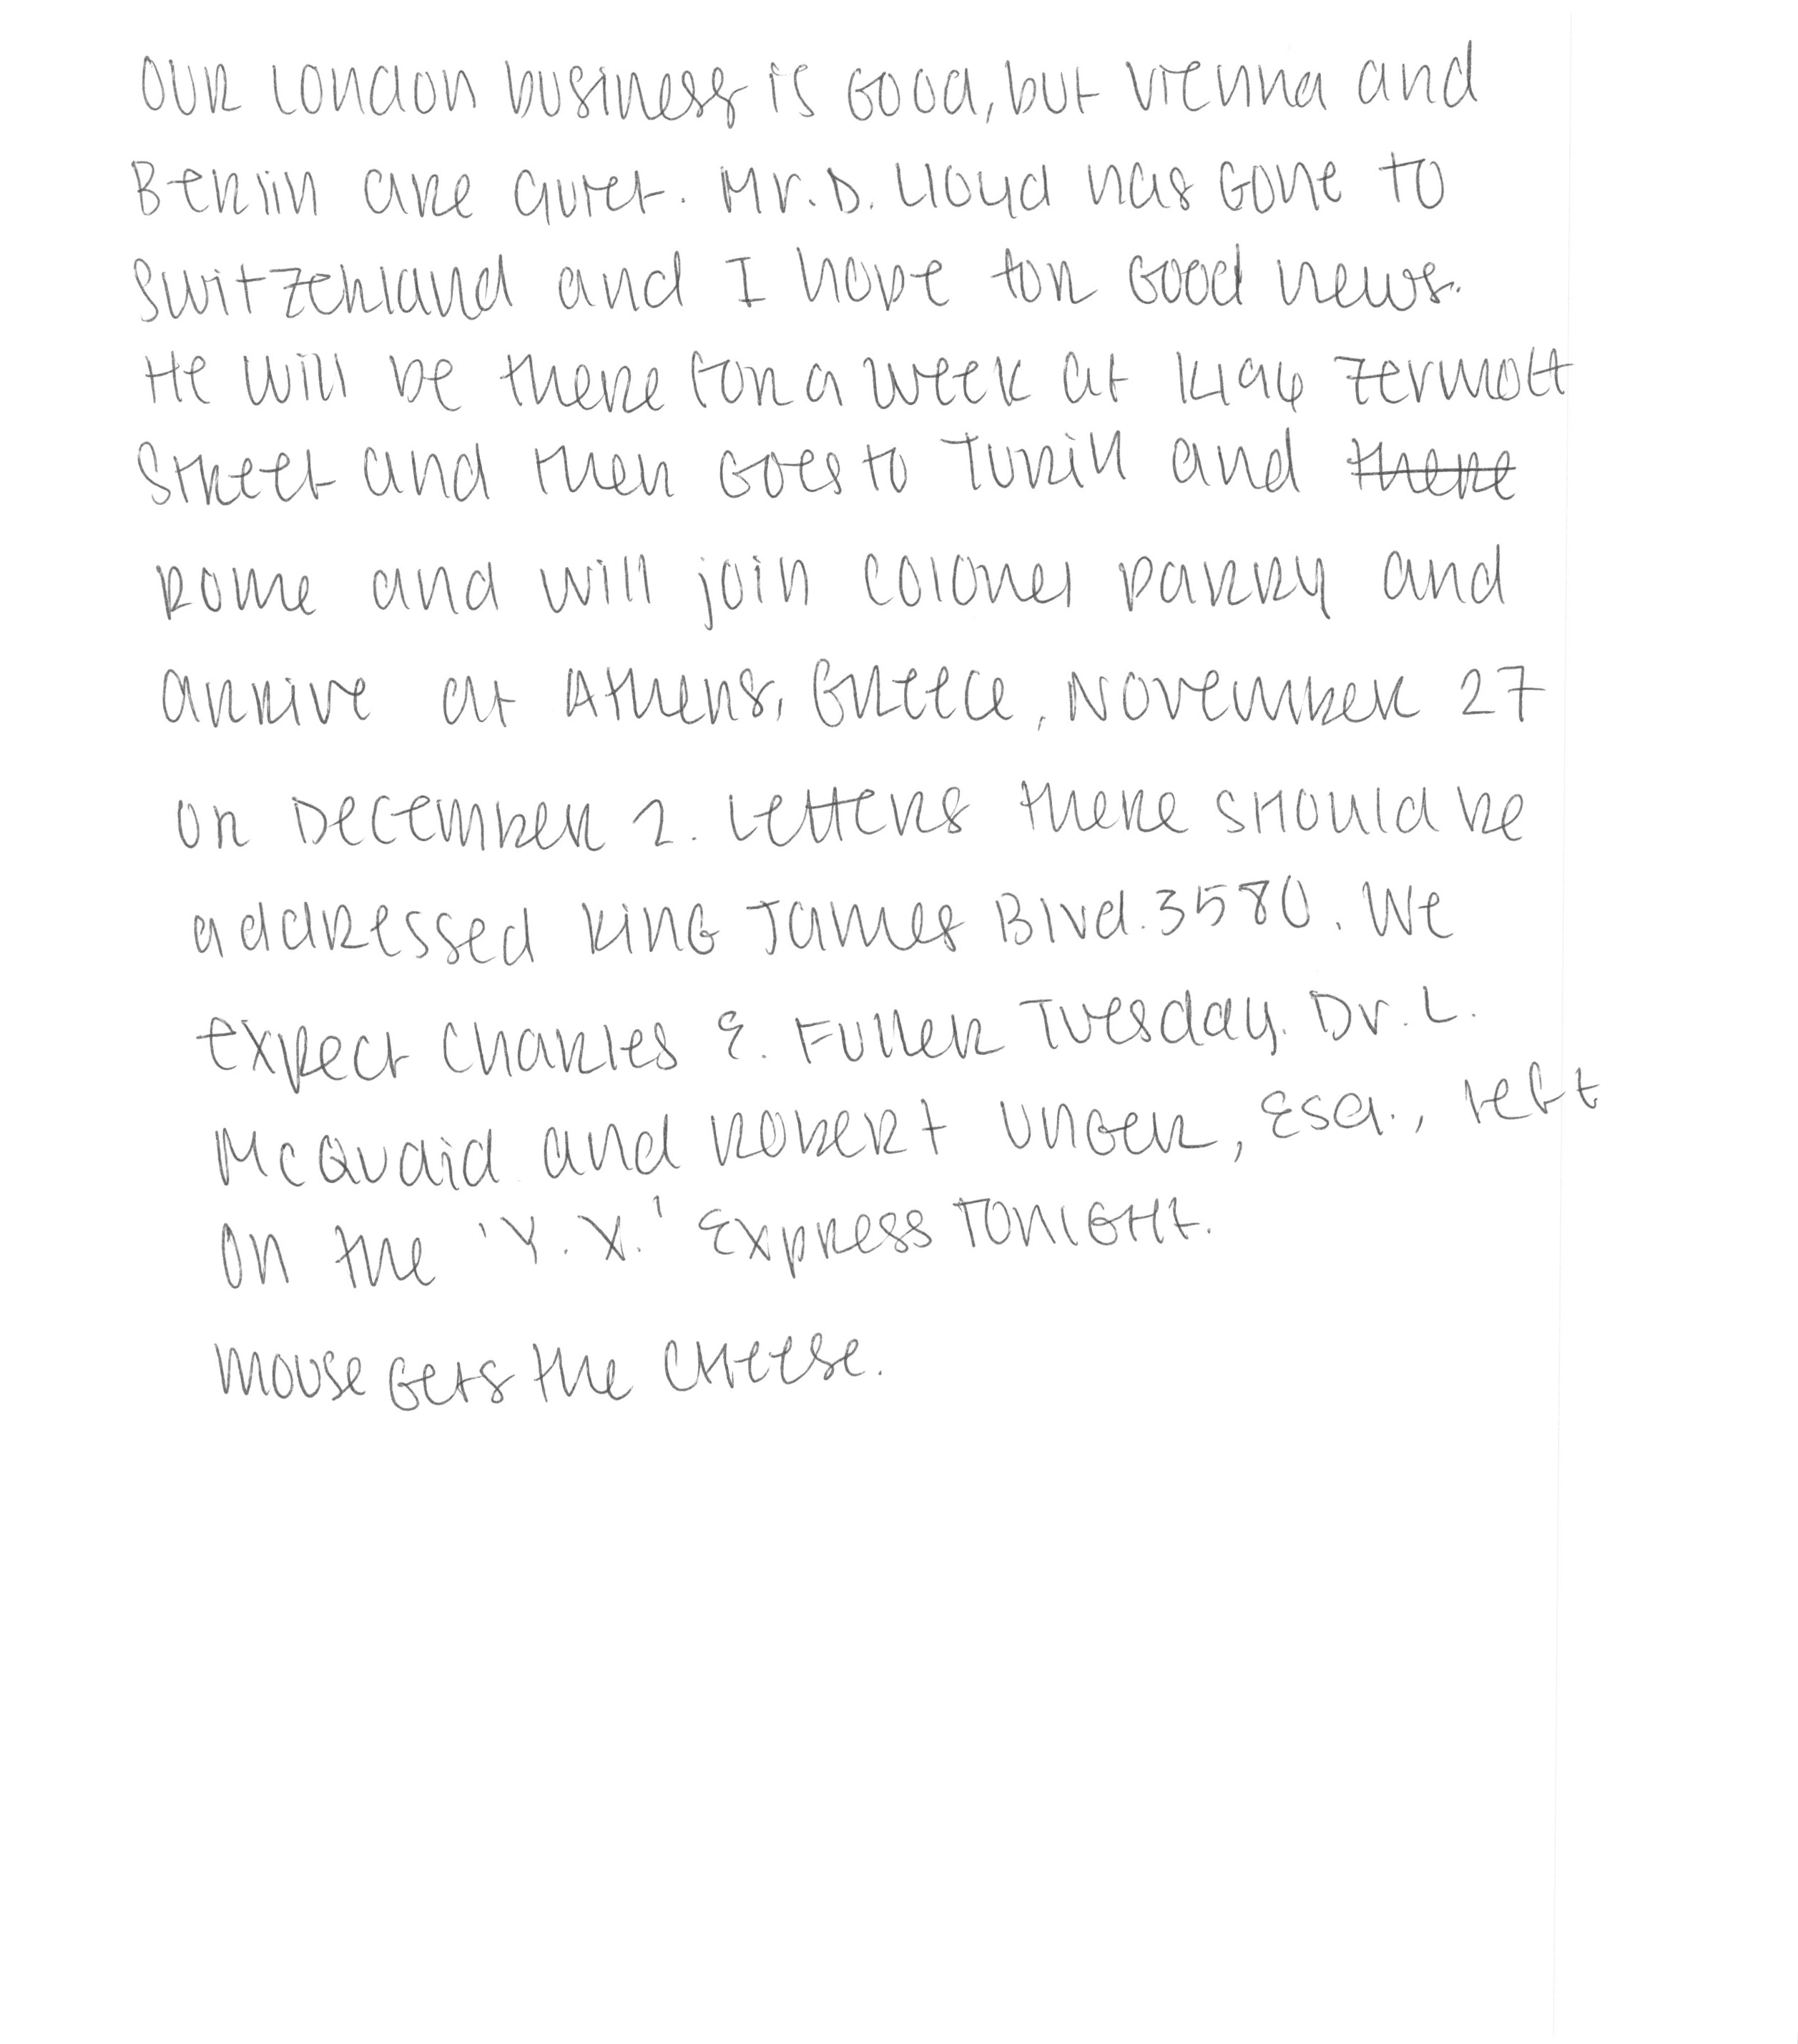 Our London business is Good, but Vienna and
Berlin are quiet. Mr. D. Lloyd has Gone to
Switzerland and I hope for Good news.
He will be there for a week at 1496 Zermott
Street and then Goes to Turin and there
Rome and will join Colonel Parry and
arrive at Athens, Greece, November 27
or December 2. Letters there should be
addressed King James Blvd. 3580. We
expect Charles E. Fuller Tuesday. Dr. L.
McQuaid and Robert Unger, Esq., left
on the 'Y. X.' Express Tonight.
mouse Gets the cheese.